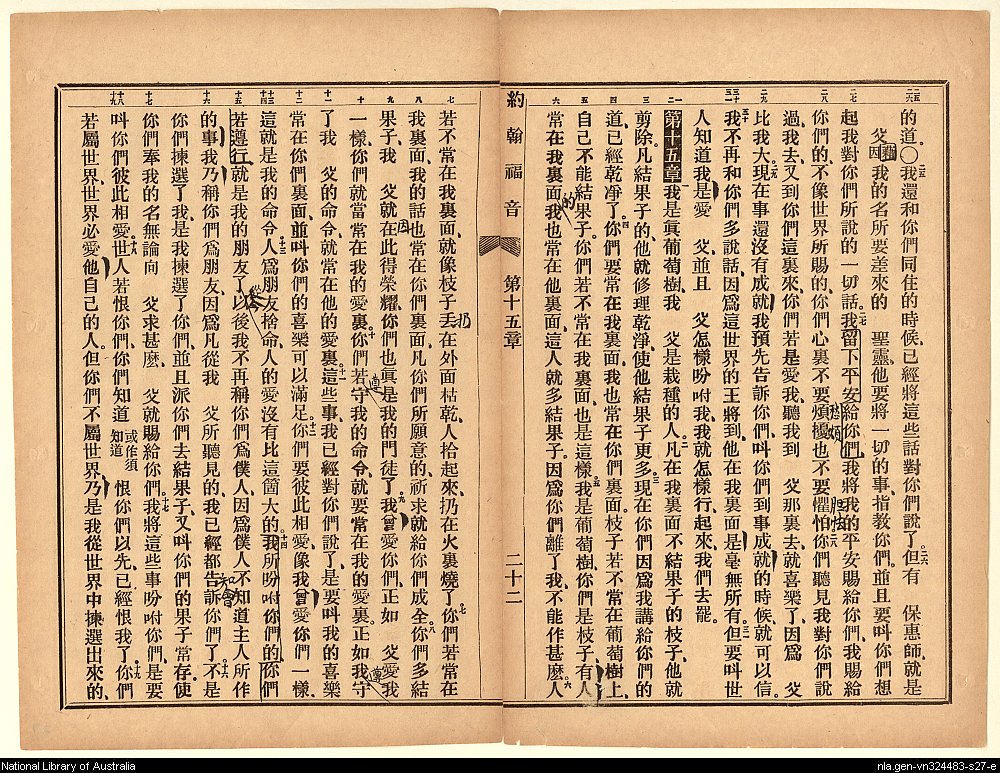 的道。○我還和你們同住的時候、已經將這些話對你們說了、但有　保惠師就是
父因我的名所要差來的　聖靈、他要將一切的事、指教你們、並且要叫你們想
起我對你們所說的一切話。我留下平安給你們、我將我的平安賜給你們、我賜給
你們的、不像世界所賜的、你們心裏不要煩擾、也不要懼怕。你們聽見我對你們說
過、我去、又到你們這裏來、你們若是愛我、聽我到　父那裏去、就喜樂了、因爲　父
比我大。現在事還沒有成就、我預先告訴你們、叫你們到事成就的時候、就可以信
我不再和你們多說話、因爲這世界的王將到、他在我裏面是毫無所有。但要叫世
人知道我是愛　父、並且　父怎樣吩咐我、我就怎樣行、起來我們去罷。
第十五章 我是眞葡萄樹、我　父是栽種的人。凡在我裏面不結果子的枝子、他就
剪除、凡結果子的、他就修理乾淨、使他結果子更多。現在你們因爲我講給你們的
道、已經乾凈了。你們要常在我裏面、我也常在你們裏面、枝子若不常在葡萄樹上、
自己不能結果子、你們若不常在我裏面、也是這樣。我是葡萄樹、你們是枝子、有人
常在我裏面、我也常在他裏面、這人就多結果子、因爲你們離了我、不能作甚麼。人
約翰福音　第十五章　二十二
若不常在我裏面、就像枝子丟在外面枯乾、人拾起來、扔在火裏燒了。你們若常在
我裏面、我的話也常在你們裏面、凡你們所願意的、祈求就給你們成全。你們多結
果子、我　父就在此得榮耀、你們也眞是我的門徒了。我曾愛你們、正如　父愛我
一樣、你們就當常在我的愛裏。你們若守我的命令、就要常在我的愛裏、正如我守
了我　父的命令、就常在他的愛裏。這些事我已經對你們說了、是要叫我的喜樂
常在你們裏面、並叫你們的喜樂可以滿足。你們要彼此相愛、像我曾愛你們一樣、
這就是我的命令。人爲朋友捨命、人的愛沒有比這箇大的。我所吩咐你們的、你們
若遵行、就是我的朋友了。以後我不再稱你們爲僕人、因爲僕人不知道主人所作
的事、我乃稱你們爲朋友、因爲凡從我　父所聽見的、我已經都告訴你們了。不是
你們揀選了我、是我揀選了你們、並且派你們去結果子、又叫你們的果子常存、使
你們奉我的名、無論向　父求甚麼　父就賜給你們。我將這些事吩咐你們、是要
叫你們彼此相愛。世人若恨你們、你們知道或作須知道恨你們以先、已經恨我了。你們
若屬世界、世界必愛他自己的人、但你們不屬世界、乃是我從世界中揀選出來的、
National Library of Australia
nla.gen-vn324483-s27-e